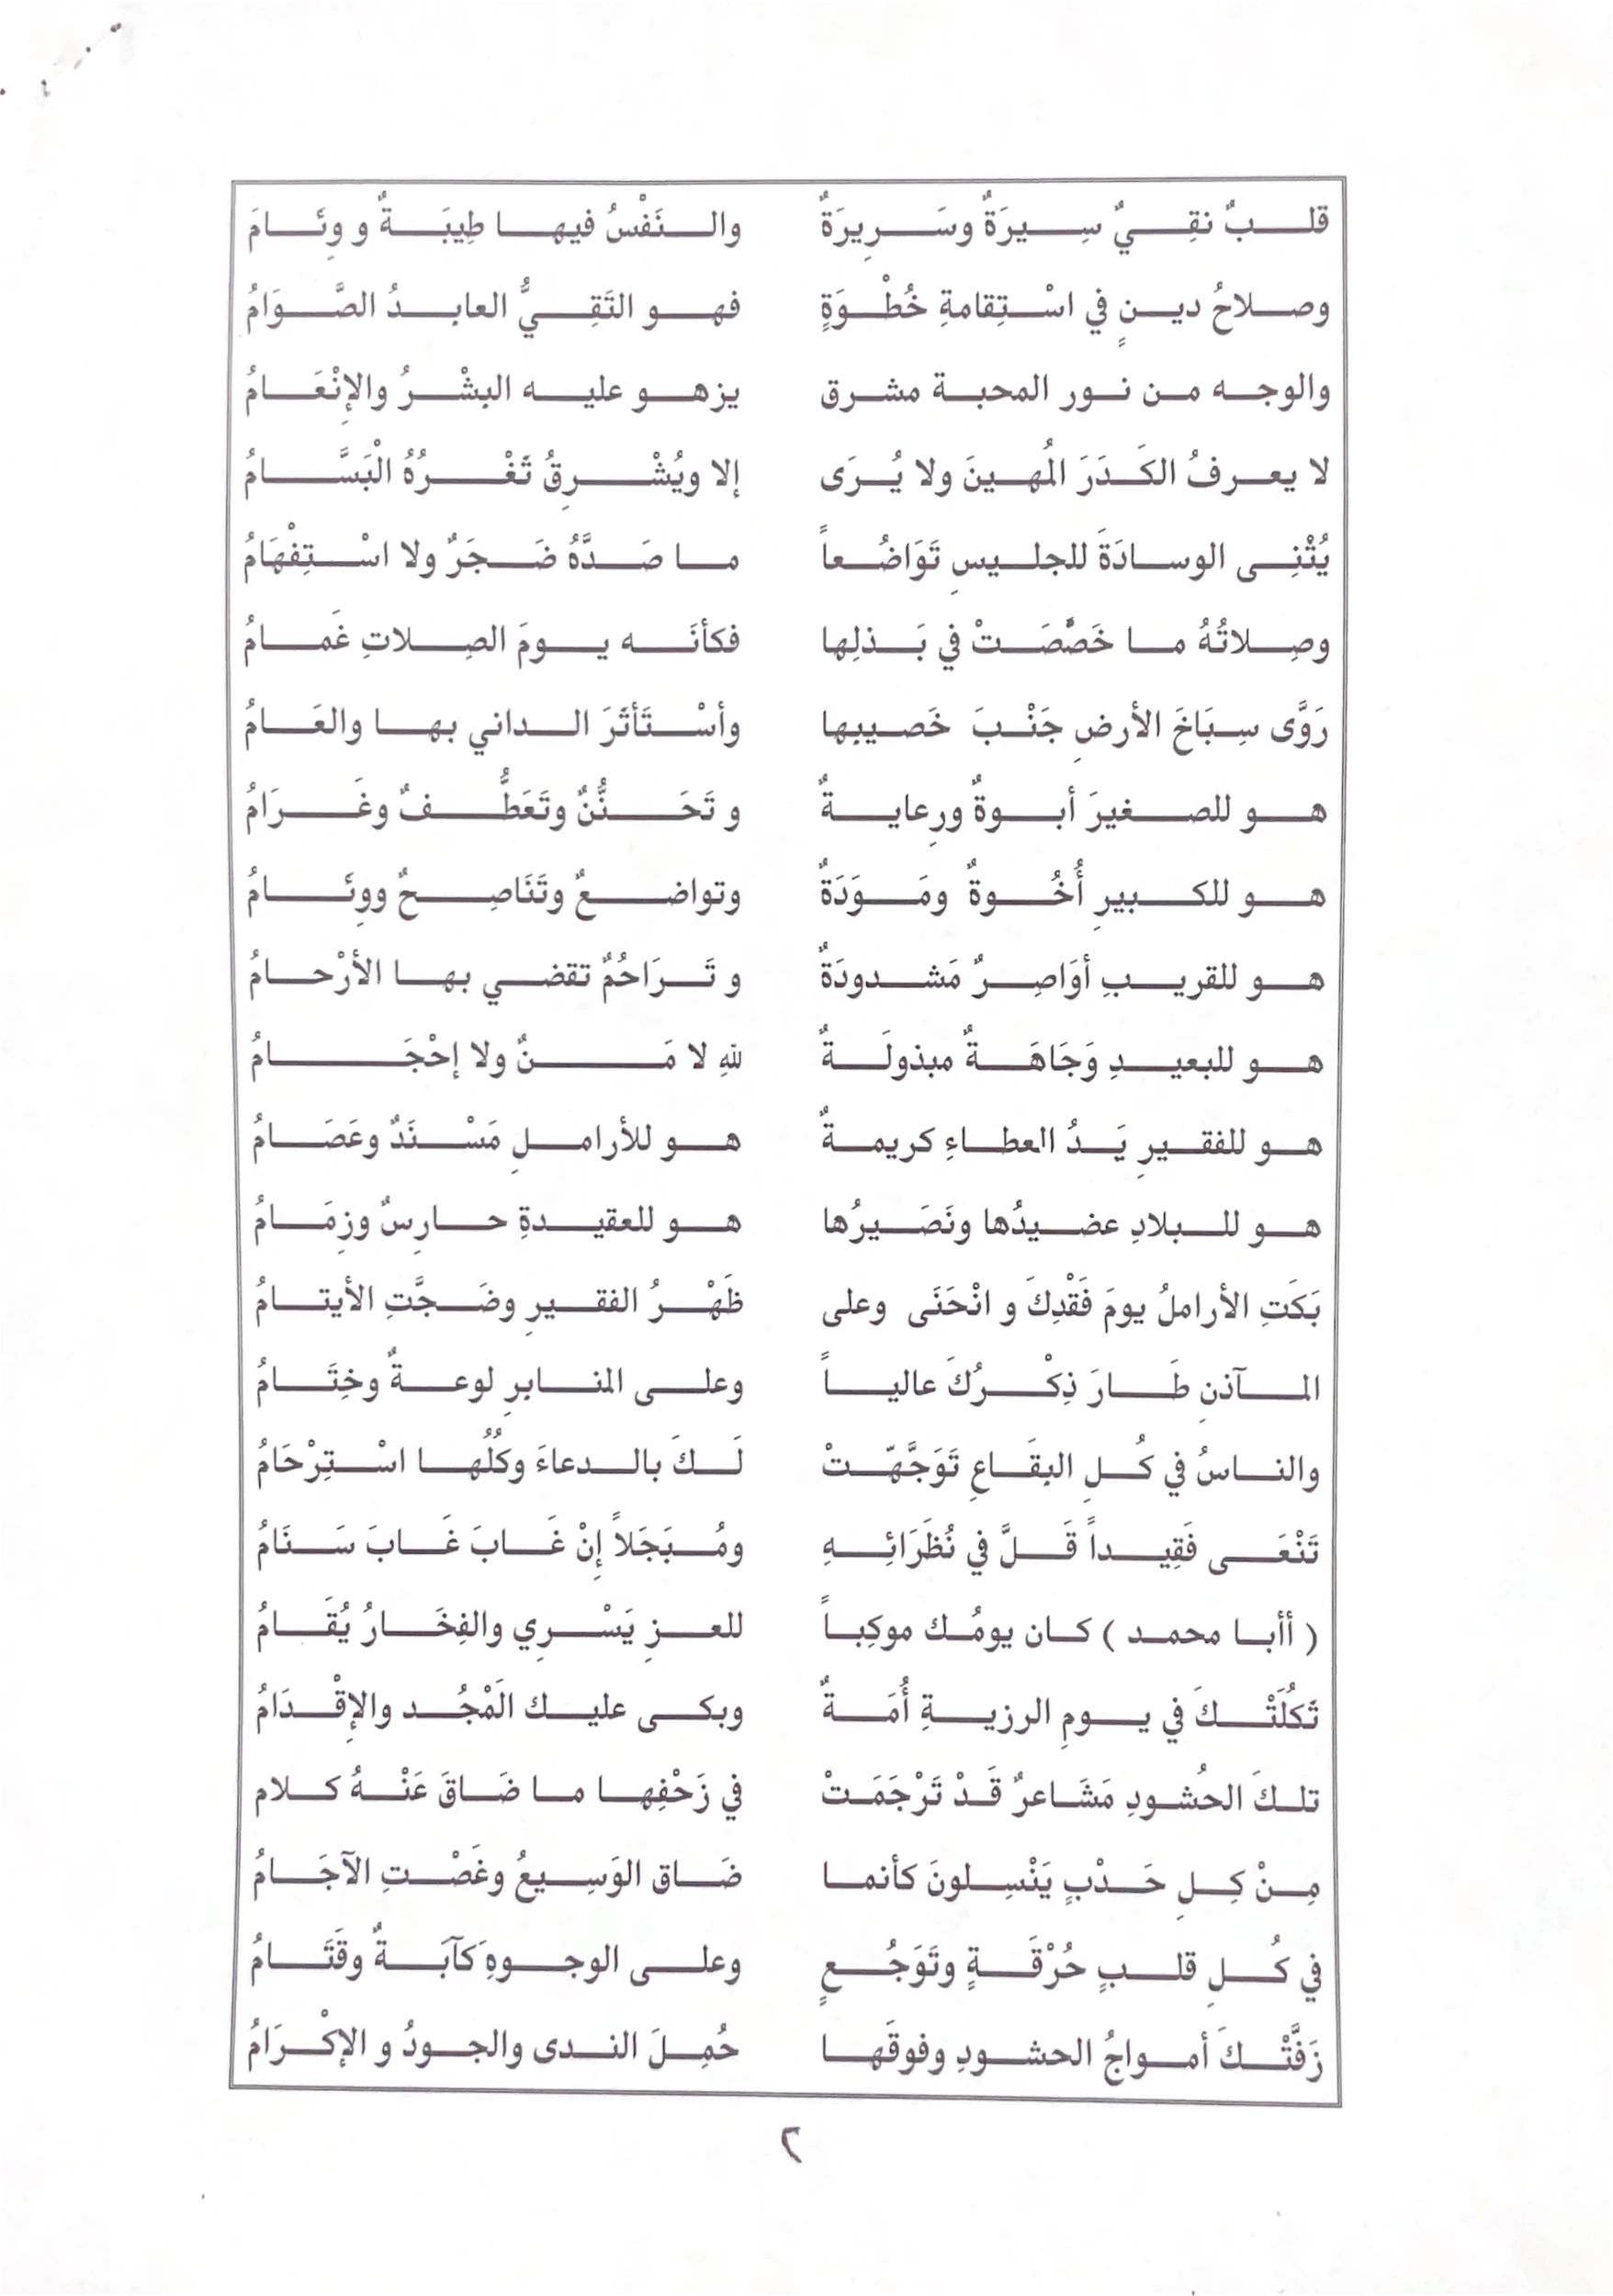 قلبٌ نقِيٌ سِيرَةٌ وسَرِيرَةٌ والنَفْسُ فيها طِيبَةٌ و وِئَامَ
وصلاحُ دينٍ في اسْتِقامةِ خُطْوَةٍ فهو التَقِيُّ العابدُ الصَّوَامُ
والوجه من نور المحبة مشرق يزهو عليه البِشْرُ والإنْعَامُ
لا يعرفُ الكَدَرَ المُهينَ ولا يُرَى إلا ويُشْرِقُ ثَغْرُهُ الْبَسَّامُ
يُثْنِى الوسادَةَ للجليسِ تَوَاضُعاً ما صَدَّهُ ضَجَرٌ ولا اسْتِفْهَامُ
وصِلاتُهُ ما خَصَّصَتْ في بَذلِها فكأنَه يومَ الصِلاتِ غَمامُ
رَوَّى سِبَاخَ الأرضِ جَنْبَ خَصيبِها وأسْتَأثَرَ الداني بها والعَامُ
هو للصغيرَ أبوةٌ ورِعايةٌ و تَحَنُّنٌ وتَعَطُّفٌ وغَرَامُ
هو للكبيرِ أُخُوةٌ ومَوَدَةٌ وتواضعٌ وتَنَاصِحٌ ووِئَامُ
هو للقريبِ أوَاصِرٌ مَشدودَةٌ و تَرَاحُمٌ تقضي بها الأرْحامُ
هو للبعيدِ وَجَاهَةٌ مبذولَةٌ للهِ لا مَنٌ ولا إحْجَامُ
هو للفقيرِ يَدُ العطاءِ كريمةٌ هو للأراملِ مَسْنَدٌ وعَصَامُ
هو للبلادِ عضيدُها ونَصَيرُها هو للعقيدةِ حارِسٌ وزِمَامُ
بَكَتِ الأراملُ يومَ فَقْدِكَ و انْحَنَى وعلى ظَهْرُ الفقيرِ وضَجَّتِ الأيتامُ
المآذنِ طَارَ ذِكْرُكَ عالياً وعلى المنابرِ لوعةٌ وخِتَامُ
والناسُ في كُلِ البِقَاعِ تَوَجَّهّتْ لَكَ بالدعاءَ وكُلُها اسْتِرْحَامُ
تَنْعَى فَقِيداً قَلَّ في نُظَرَائِهِ ومُبَجَلاً إنْ غَابَ غَابَ سَنَامُ
( أأبا محمد ) كان يومُك موكِباً للعزِ يَسْرِي والفِخَارُ يُقَامُ
ثَكُلَتْكَ في يومِ الرزيةِ أُمَةٌ وبكى عليك المَجُد والإقْدَامُ
تلكَ الحُشودِ مَشَاعرٌ قَدْ تَرْجَمَتْ في زَحْفِها ما ضَاقَ عَنْهُ كلام
مِنْ كِلِ حَدْبٍ يَنْسِلونَ كأنما ضَاق الوَسِيعُ وغَصْتِ الآجَامُ
في كُلِ قلبٍ حُرْقَةٍ وتَوَجُعٍ وعلى الوجوهِ كَآبَةٌ وقَتَامُ
زَفَّتْكَ أمواجُ الحشودِ وفوقَها حُمِلَ الندى والجودُ و الإكْرَامُ
٢